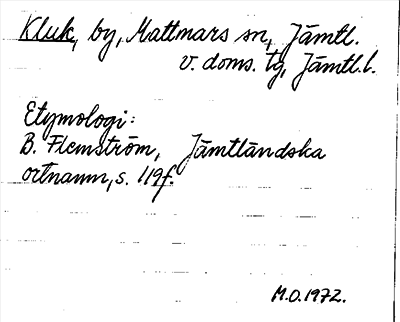 Kluk, by, Mattmars sn, Jämtl.
v. doms. tg, Jämtl. l.
Etymologi:
B. Flemström, Jämtländska
ortnamn, s. 119f.
M.O. 1972.